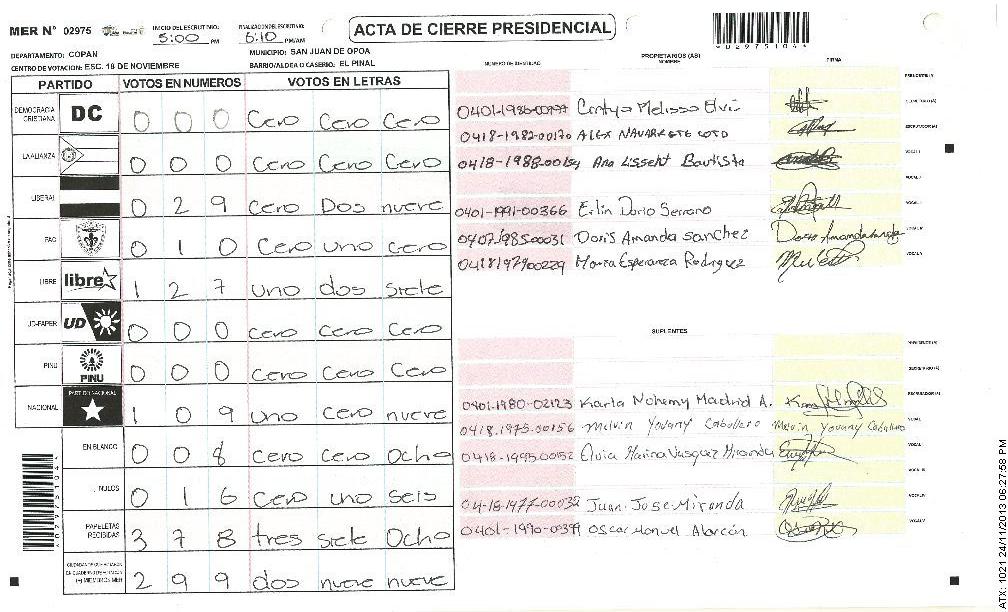 MER Nº 02975
INICIO DEL ESCRUTINIO: 5:00 PM
FINALIZACION DEL ESCRUTINIO: 6:10 PM/AM
ACTA DE CIERRE PRESIDENCIAL
*02975104*
DEPARTAMENTO: COPAN
MUNICIPIO: SAN JUAN DE OPOA
CENTRO DE VOTACION: ESC. 18 DE NOVIEMBRE
BARRIO/ALDEA O CASERIO: EL PINAL
PARTIDO VOTOS EN NUMEROS VOTOS EN LETRAS
DEMOCRACIA CRISTIANA DC 0 0 0 Cero Cero Cero
LA ALIANZA 0 0 0 Cero Cero Cero
LIBERAL 0 2 9 Cero Dos nueve
PAC 0 1 0 Cero uno cero
LIBRE libre 1 2 7 uno dos siete
UD-FAPER UD 0 0 0 Cero Cero Cero
PINU PINU 0 0 0 Cero Cero Cero
NACIONAL PARTIDO NACIONAL 1 0 9 uno cero nueve
EN BLANCO 0 0 8 cero cero Ocho
NULOS 0 1 6 cero uno seis
PAPELETAS RECIBIDAS 3 7 8 tres siete Ocho
(+) MIEMBROS MER 2 9 9 dos nueve nueve
NUMERO DE IDENTIDAD
PROPIETARIOS (AS)
NOMBRE
FIRMA
PRESIDENTE (A)
SECRETARIO (A)
0401-1986-00797 Melissa
ESCRUTADOR (A)
0418-1982-00170 ALEX NAVARRETE COTO
VOCAL I
0418-1988-00154 Ana Lisseht Bautista
0401-1991-00366 Erlin Dario Serrano
0407-1985-00031 Doris Amanda Sanchez
0418197900229 Maria Esperanza Rodriguez
SUPLENTES
PRESIDENTE (A)
SECRETARIO (A)
ESCRUTADOR (A)
0401-1980-02123 Karla Nohemy Madrid A.
0418-1975-00156 Melvin Yovany Caballero Melvin Yovany Caballero
0418-1995-00152 Elvia Marina Vasquez Miranda
0418-1977-00032 Juan Jose Miranda
0401-1990-00399 Oscar Manuel Alarcón
VOCAL V
*02975104*
ATX: 1021 24/11/2013 06:27:58 PM